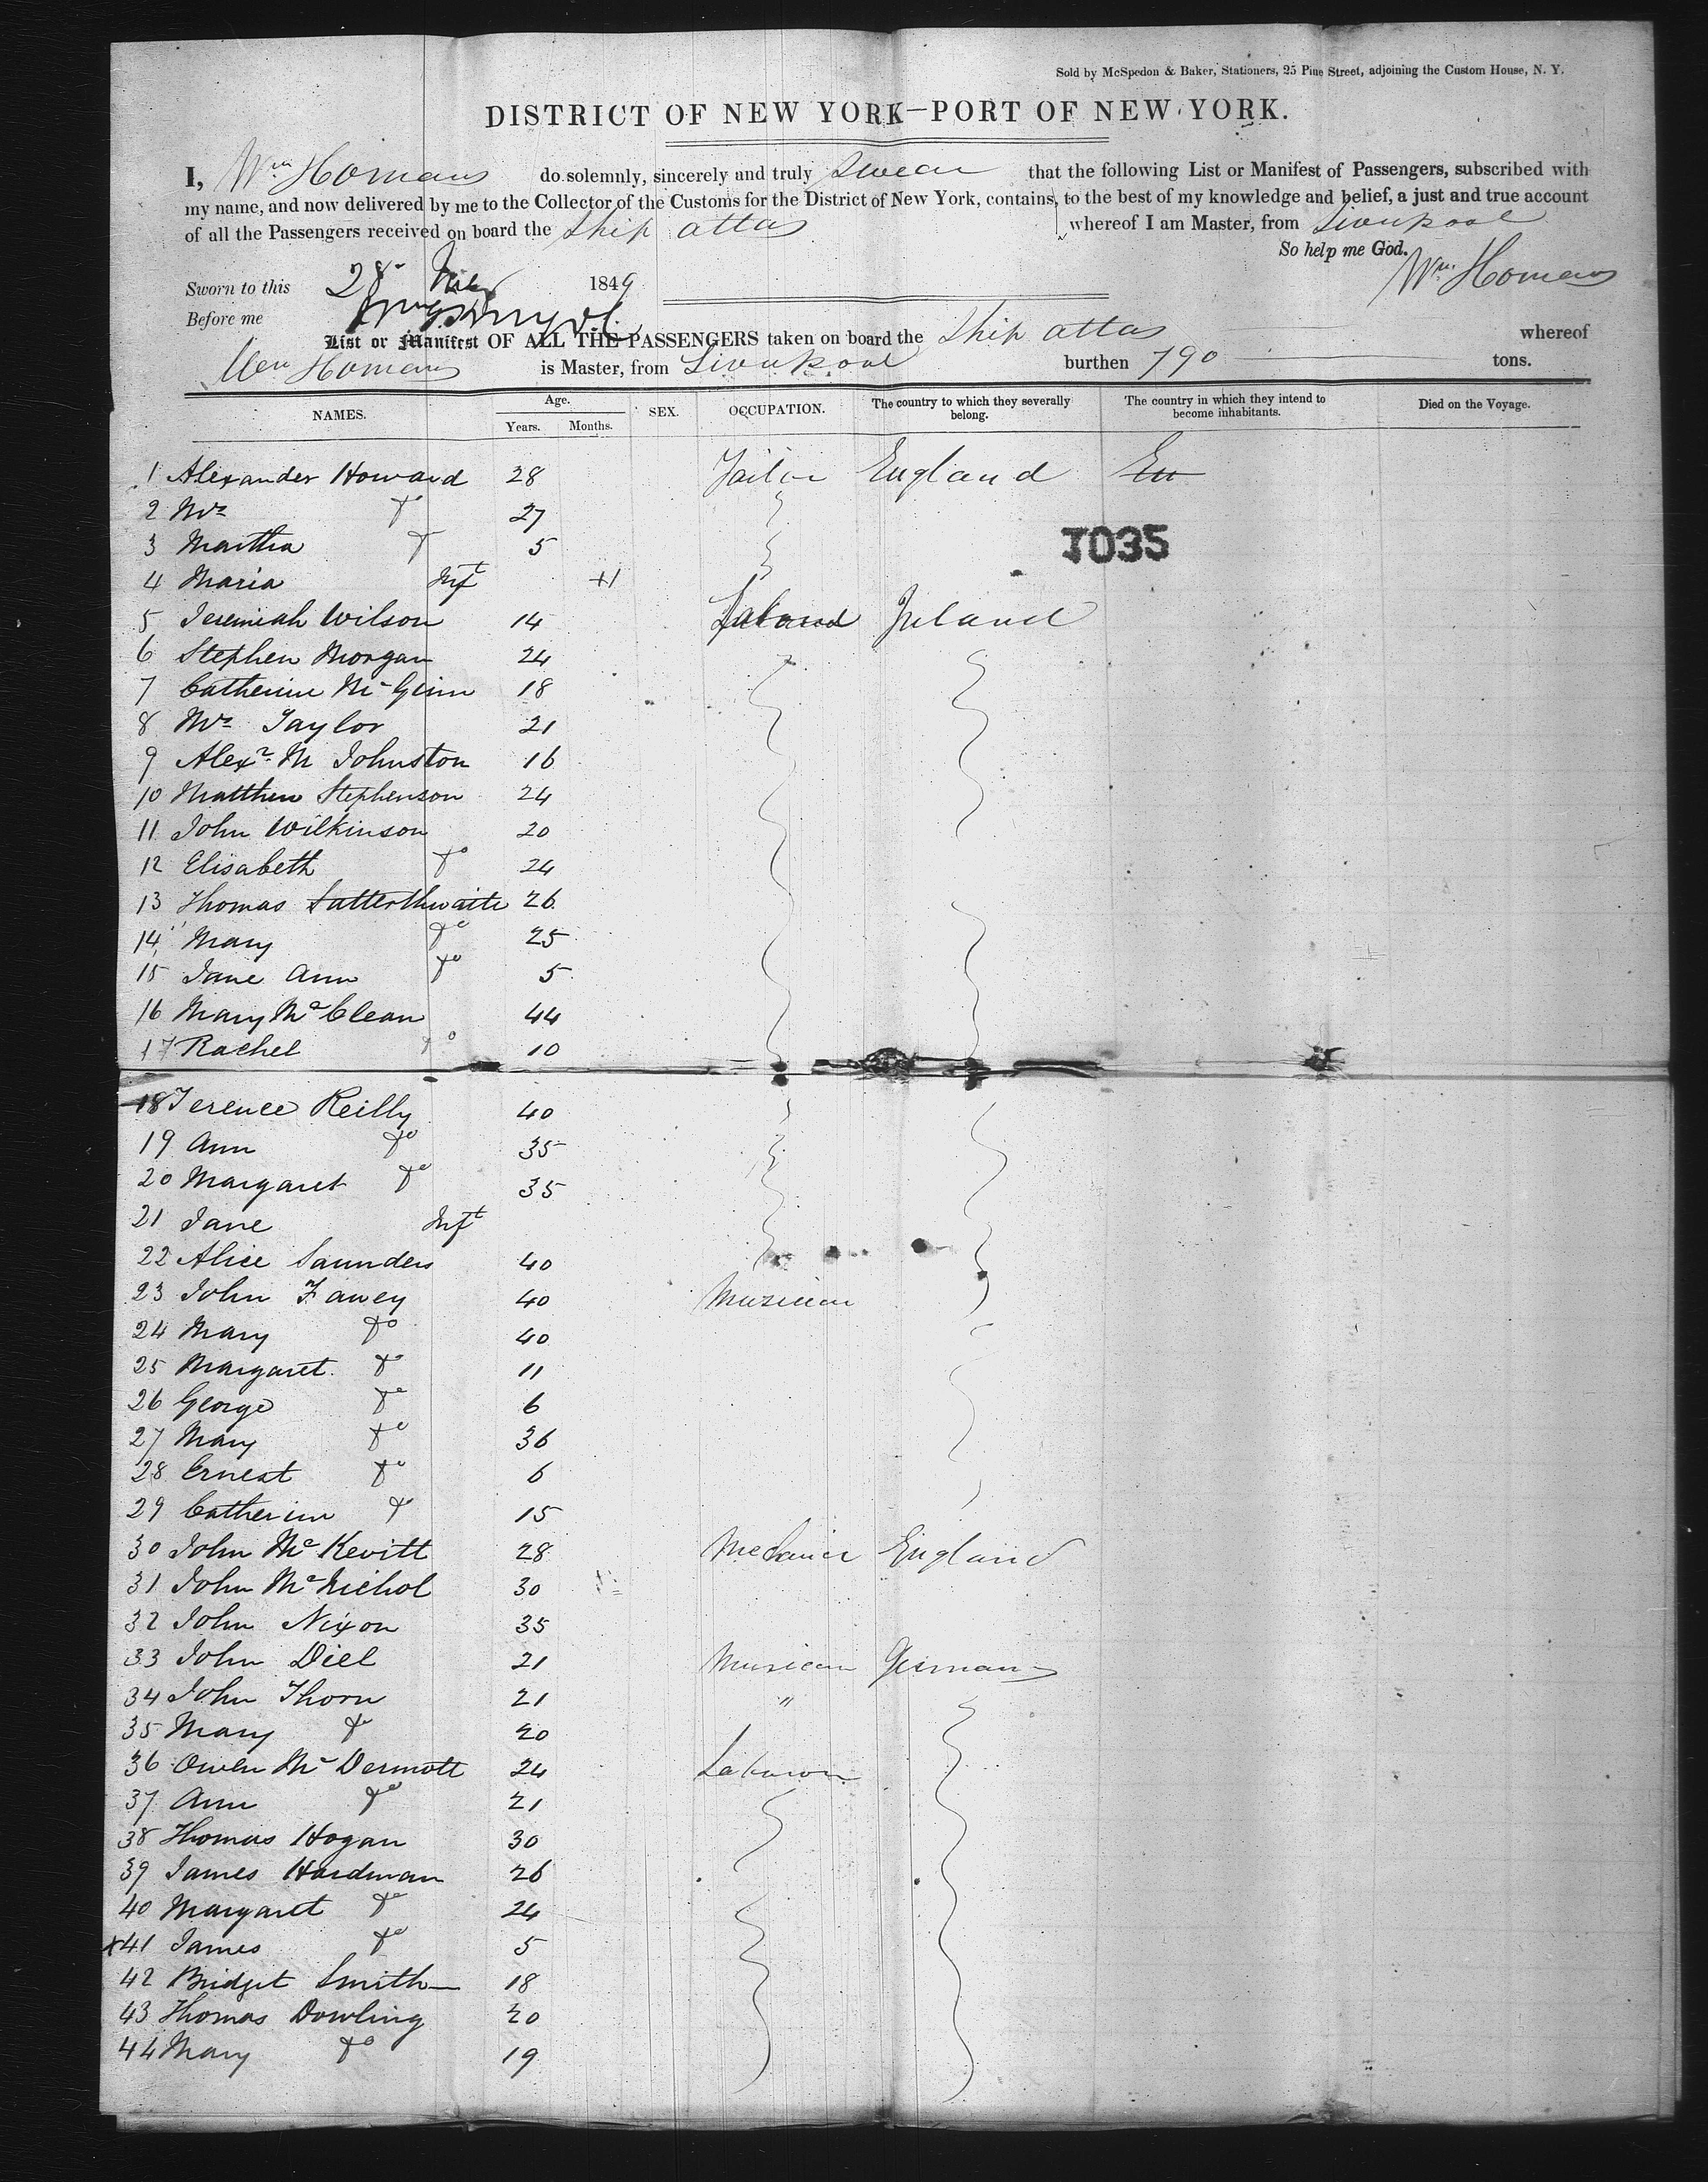 Sold by McSpedon & Baker, Stationers, 25 Pine Street, adjoining the Custom House, N. Y.
DISTRICT OF NEW YORK—PORT OF NEW YORK.
I, Wm Homans do solemnly, sincerely and truly swear that the following List or Manifest of Passengers, subscribed with
my name, and now delivered by me to the Collector of the Customs for the District of New York, contains, to the best of my knowledge and belief, a just and true account
of all the Passengers received on board the Ship attas whereof I am Master, from Liverpool
So help me God.
Wm. Homans
Sworn to this 28 1849
Before me
List or Manifest OF ALL THE PASSENGERS taken on board the Ship attas whereof
Wm Homans is Master, from Liverpool burthen 790 tons.
NAMES. Age. Years. Months. SEX. OCCUPATION. The country to which they severally belong. The country in which they intend to become inhabitants. Died on the Voyage.
1 Alexander Howard 28 Tailor England En
2 Mrs do 27
1035
3 Martha do 5
4 Maria Inft 11
5 Jeremiah Wilson 14 Labourer Ireland
6 Stephen Morgan 24
7 Catherine Mc Ginn 18
8 Mrs Taylor 21
9 Alexr M Johnston 16
10 Matthew Stephenson 24
11 John Wilkinson 20
12 Elisabeth do 24
13 Thomas Satterthwaite 26
14 Mary do 25
15 Jane Ann do 5
16 Mary Mc Clean 44
17 Rachel do 10
18 Terence Reilly 40
19 Ann do 35
20 Margaret do 35
21 Jane Inft
22 Alice Saunders 40
23 John Fawey 40 Musician
24 Mary do 40
25 Margaret do 11
26 George do 6
27 Mary do 36
28 Ernest do 6
29 Catherine do 15
30 John Mc Kevitt 28 Mechanic England
31 John Mc Nichol 30
32 John Nixon 35
33 John Diel 21 Musician Germany
34 John Thorn 21 "
35 Mary do 20
36 Owen Mc Dermott 24 Labourer
37 Ann do 21
38 Thomas Hogan 30
39 James Hardman 26
40 Margaret do 24
x41 James do 5
42 Bridget Smith 18
43 Thomas Dowling 20
44 Mary do 19